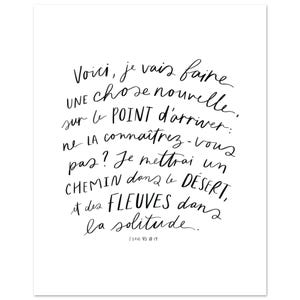 Voici, je vais faire
UNE chose nouvelle,
sur le POINT d'arriver:
ne LA connaîtrez-vous
pas? Je mettrai un
CHEMIN dans le DÉSERT,
et des FLEUVES dans
la solitude.